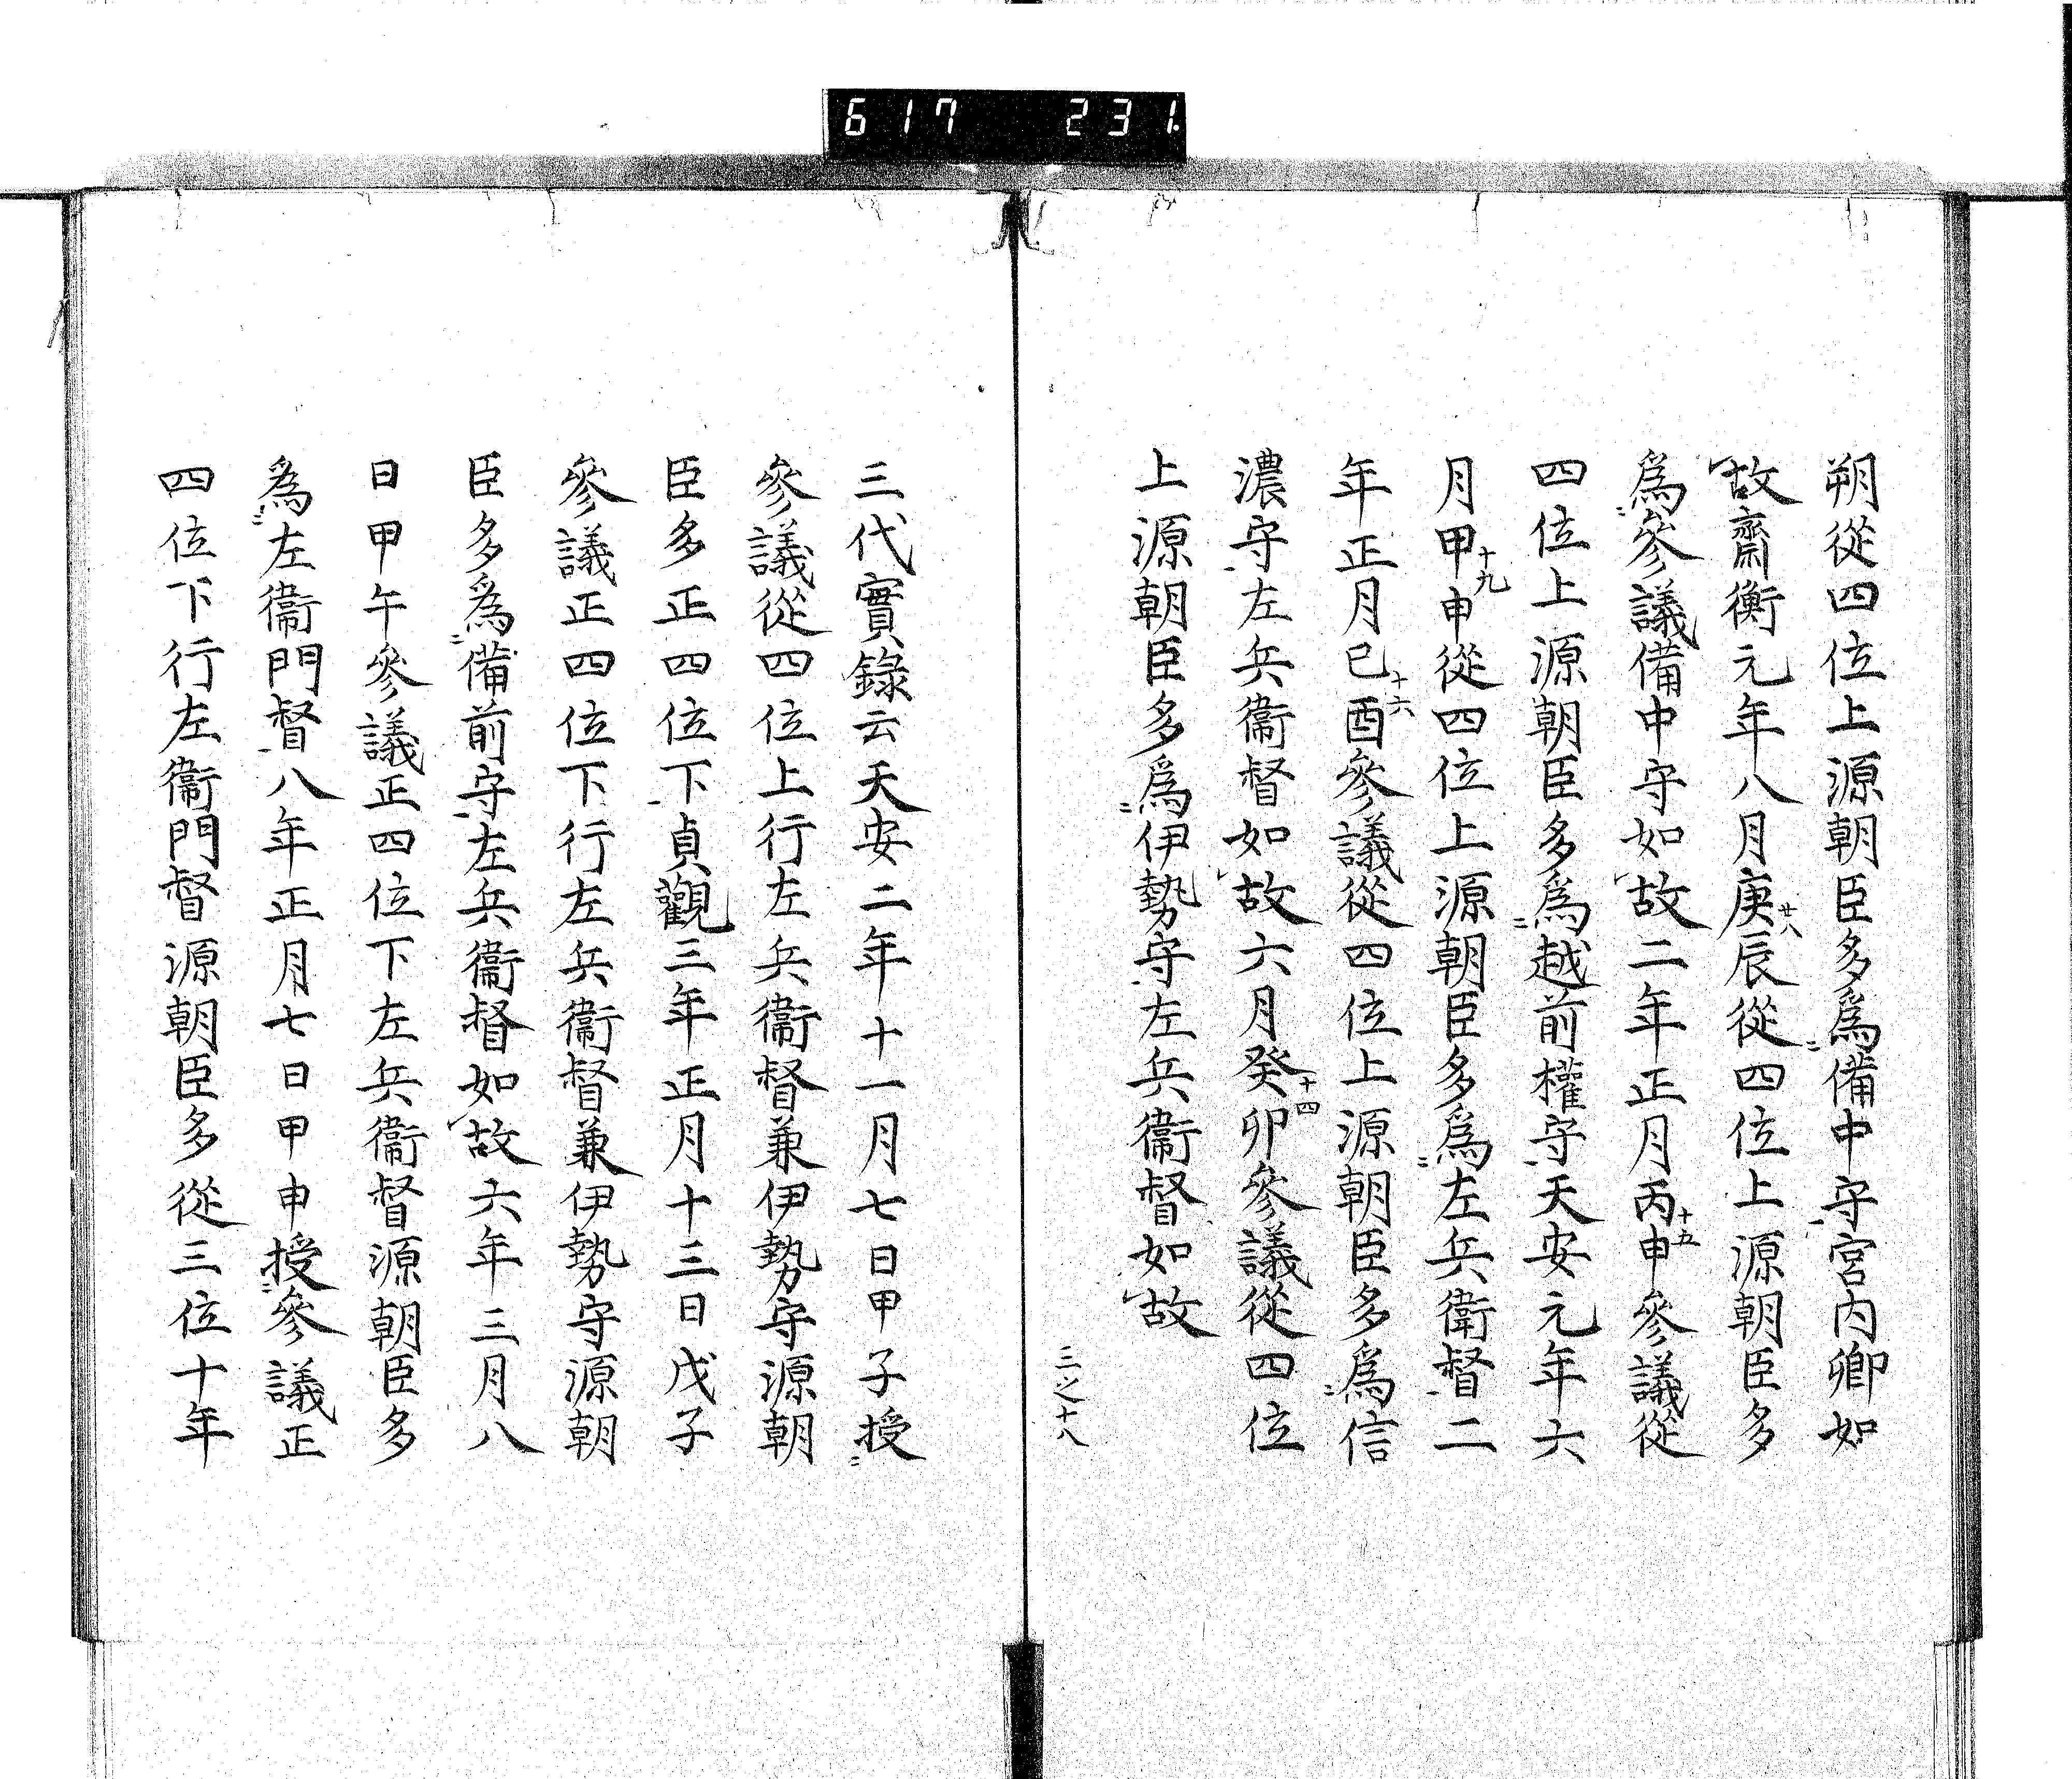 617 231
朔從四位上源朝臣多爲備中守宮内卿如
故齋衡元年八月庚辰廿八從四位上源朝臣多
爲參議備中守如故二年正月丙申十五參議從
四位上源朝臣多爲越前權守天安元年六
月甲申十九從四位上源朝臣多爲左兵衛督二
年正月己酉十六參議從四位上源朝臣多爲信
濃守左兵衞督如故六月癸卯十四參議從四位
上源朝臣多爲伊勢守左兵衞督如故
三之十八
三代實錄云天安二年十一月七日甲子授
參議從四位上行左兵衞督兼伊勢守源朝
臣多正四位下貞觀三年正月十三日戊子
參議正四位下行左兵衞督兼伊勢守源朝
臣多爲備前守左兵衞督如故六年三月八
日甲午參議正四位下左兵衞督源朝臣多
爲左衞門督八年正月七日甲申授參議正
四位下行左衞門督源朝臣多從三位十年